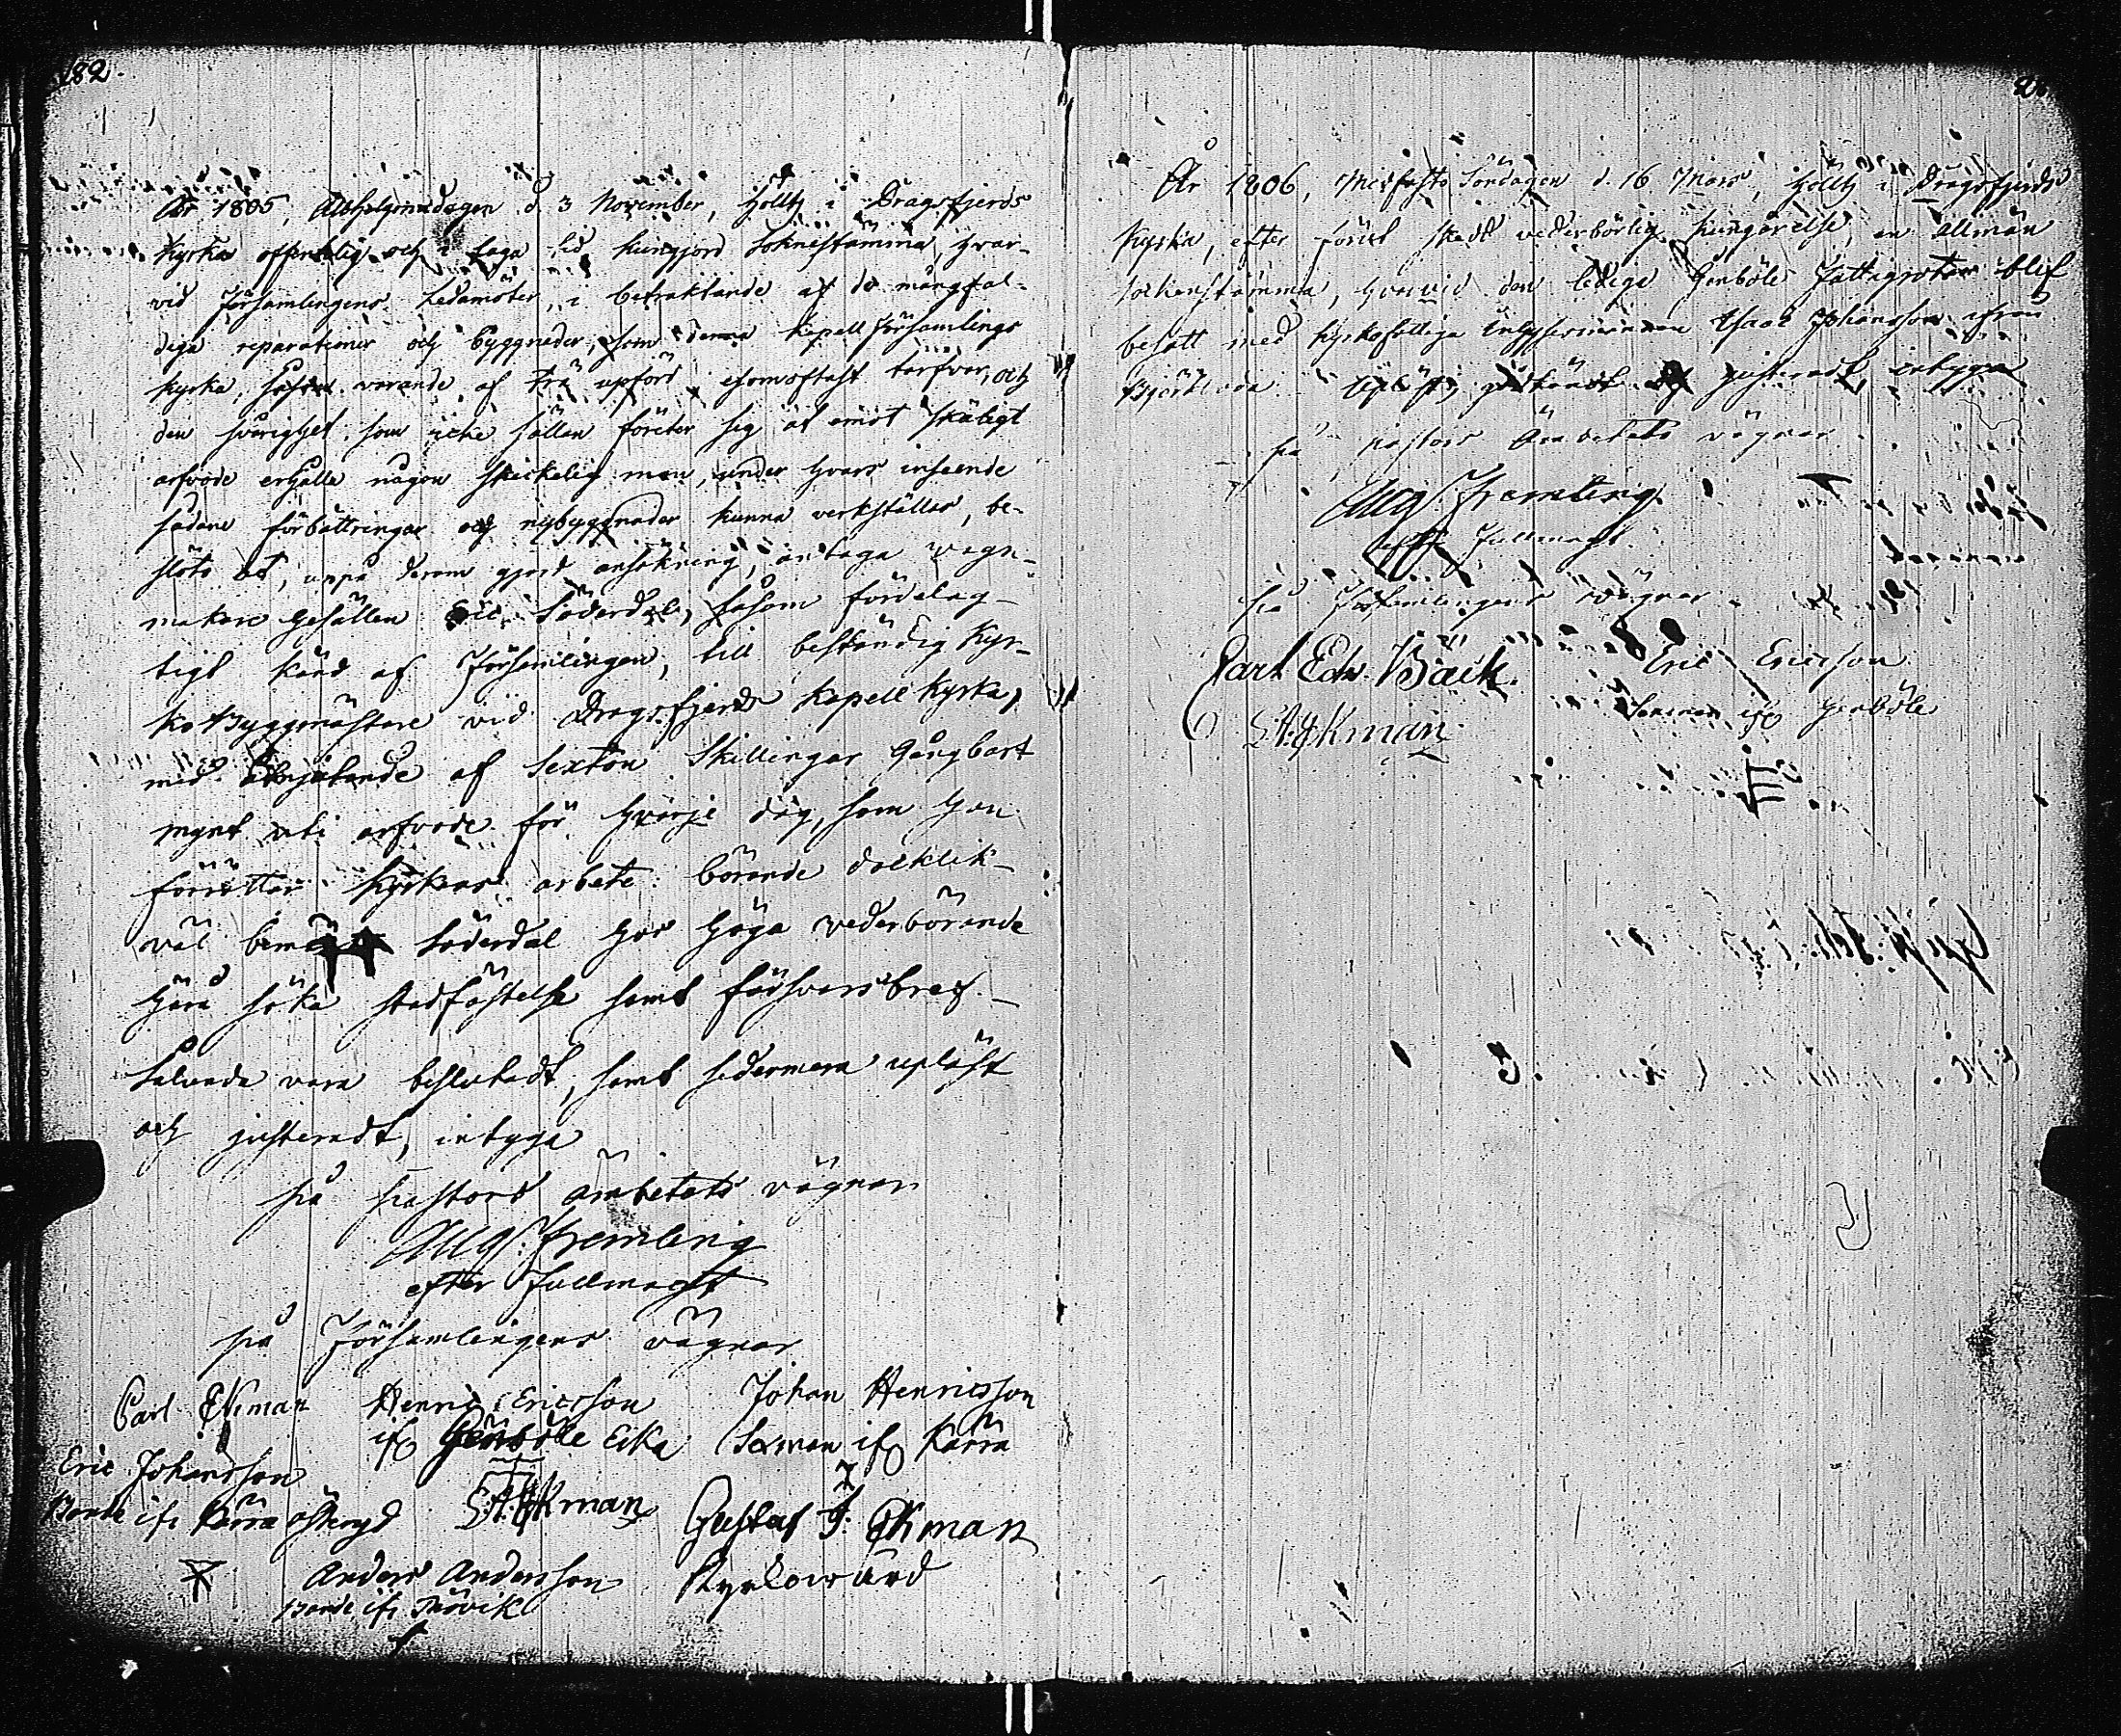 182.
År 1805, Allhelgonadagen d. 3 November, höllts i Dragsfjerds
Kyrka offentelig och i laga tid kungjord Soknestämma, hvar-
vid Församlingens Ledamöter, i betraktande af de mångfal-
diga reparationer och byggnader, som denna Kapell Församlings
kyrka, såsom varande af trä upförd esomoftast tarfvar, och
den svårighet, som icke sällan företer sig at emot skäligt
arfvode erhålla någon skickelig man, under hvars inseende
sådane förbättringar och nybyggnader kunna verkställas, be-
slöts at, uppå derom gjord ansökning, antaga vagn-
makare Gesällen Eric Söderdal, såsom fördelag-
tigt känd af Församlingen, till beständig Kyr-
ko Byggmästare vid Dragsfjerds Kapell kyrka,
med åtnjutande af Sexton Skillingar Gångbart
mynt uti arfvode för hvarje dag, som han
förrättar Kyrkans arbete: börande dock lik-
väl bemälte Söderdal hos höga vederbörande
härå söka stadfästelse samt försvarsbref. –
Sålunda vara beslutadt, samt sedermera upläst
och justeradt, intyga
på Pastors ämbetets vägnar
Aug. Fremling
efter Fullmagt
på Församlingens vägnar
Carl Ekman Henric Ericsson Johan Henricsson
ifr Genböle Eka Sexman ifr Kärra
Eric Johansson
Bonde ifr Kärra östergd S. A. Ekman Gustaf J: Ekman
Anders Andersson Kyrkowärd
Bonde ifr
År 1806, Midfasto Söndagen d. 16 Mars, höllts i Dragsfjerds
Kyrka, efter förut skedt vederbörlig kungörelse, en allmän
sockenstämma, hvarvid den lediga Genböle Fattigrotan blef
besatt med kyrkofattiga Inhyseseminnan Isaac Johansson ifrån
Björkboda. Upläst, godkändt och justeradt, intyga
på pastors Ämbetets vägnar
Aug. Fremling
efter Fullmagt.
på Församlingens vägnar
Carl Edv. Bäck. Eric Ericsson
S. A. Ekman Sexman ifr Genböle